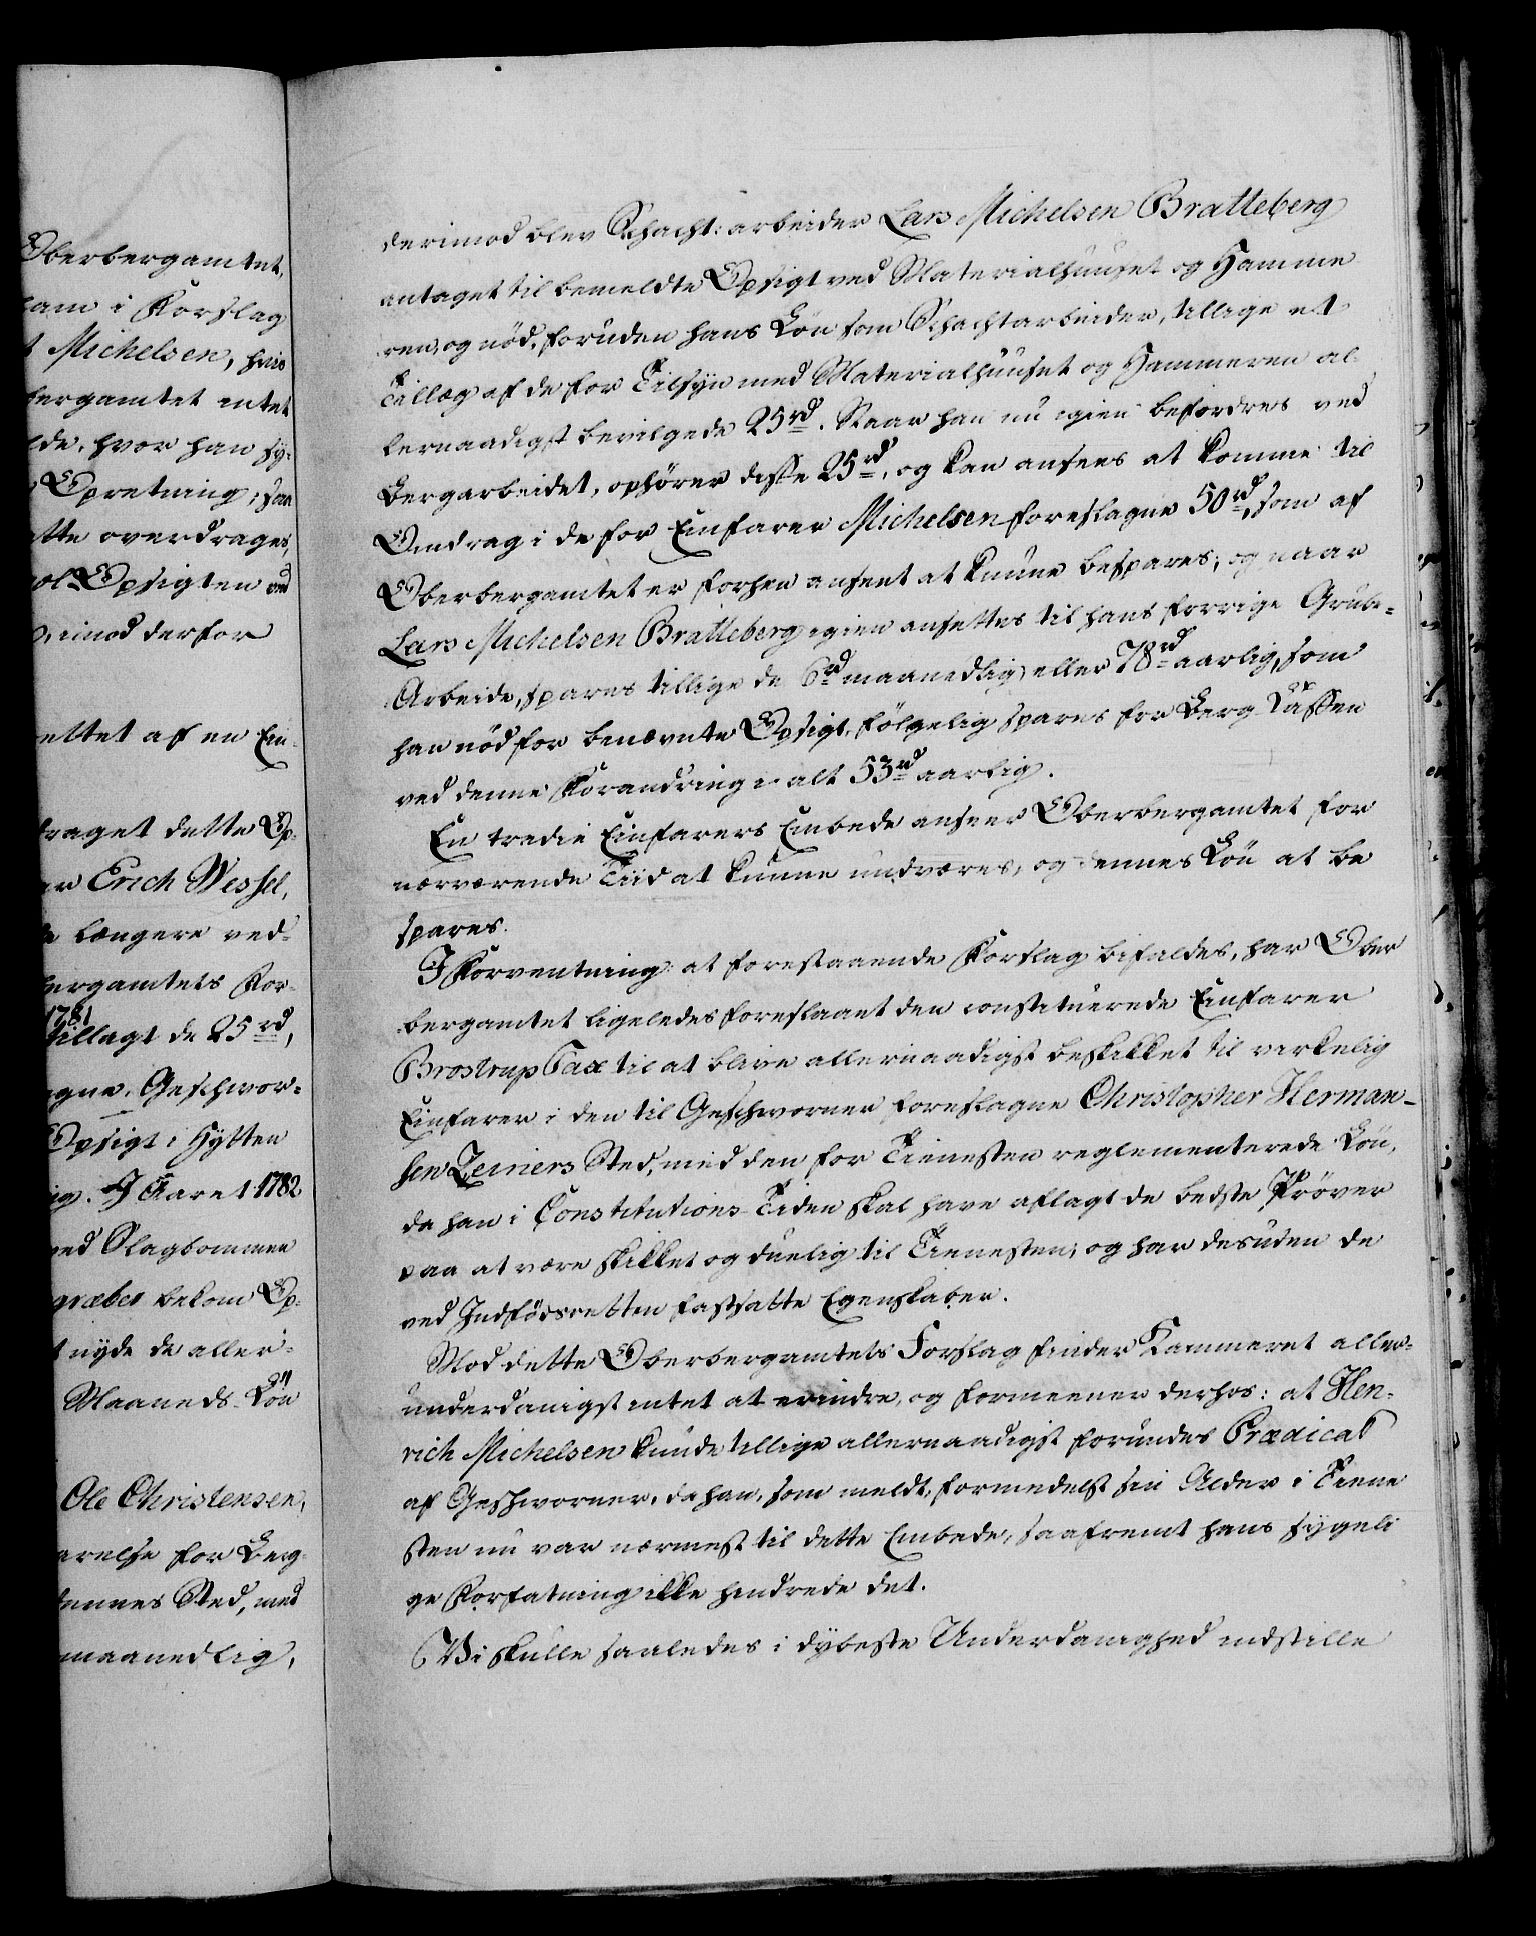 Oberbergamtet,
ham i Forslag
t Michelsen, hvis
bergamtet intet
lde, hvor han sy-
Opretning; saa
atte overdrages,
vel Opsigten ved
imod derfor
rettet af en Ein-
draget dette Op-
er Erich Wessel,
længere ved-
bergamtets For-
1781
tillagt de 25 rd,
agne, Geschwor-
Opsigt i Hytten
ig. I Aaret 1782
ved Slagbommen
græber bekom Op-
t nyde de aller-
Maaneds-Løn
Ole Christensen,
ærelse for Berg-
dennes Sted, med
maanedlig,
derimod blev Schacht-arbeider Lars Michelsen Bratteberg
antaget til bemeldte Opsigt ved Materialhuuset og Hamme
ren, og nød, foruden hans Løn som Schachtarbeider, tillige et
Tillæg af de for Tilsyn med Materialhuuset og Hammeren al
lernaadigst bevilgede 25 rd. Naar han nu igien befordres ved
Bergarbeidet, ophører disse 25 rd, og kan ansees at komme til
Omdrag i de for Einfarer Michelsen foreslagne 50 rd, som af
Oberbergamtet er forhen anseet at kunne bespares; og naar
Lars Michelsen Bratteberg igien ansettes til hans forrige Grube-
Arbeide, spares tillige de 6 rd maanedlig eller 78 rd aarlig, som
han nød for benævnte Opsigt, følgelig spares for Berg-Cassen
ved denne Forandring i alt 53 rd aarlig.
En tredie Einfarers Embede anseer Oberbergamtet for
nærværende Tiid at kunne undværes, og dennes Løn at be
spares.
I Forventning at forestaaende Forslag bifaldes, har Ober
bergamtet ligeledes foreslaaet den constituerede Einfarer
Brostrup Tax til at blive allernaadigst beskikket til virkelig
Einfarer i den til Geschworner foreslagne Christopher Herman-
sen Zeiners Sted, med den for Tienesten reglementerede Løn,
da han i Constitutions-Tiden skal have aflagt de beste Prøver
paa at være skikket og duelig til Tienesten, og har desuden de
ved Indfødsretten fastsatte Egenskaber.
Mod dette Oberbergamtets Forslag finder Kammeret aller-
underdanigst intet at erindre, og formeener derhos: at Hen-
rich Michelsen kunde tillige allernaadigst forundes Prædicat
af Geschworner, da han, som meldt, formedelst sin Alder i Tiene
sten nu var nærmest til dette Embede, saafremt hans sygeli
ge Forfatning ikke hindrede det.
Vi skulle saaledes i dybeste Underdanighed indstille